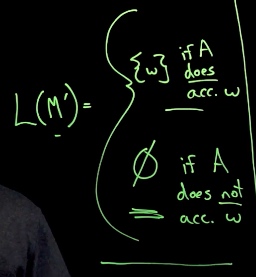 L(M') = { {w} if A
does
acc. w
∅ if A
does not
acc. w